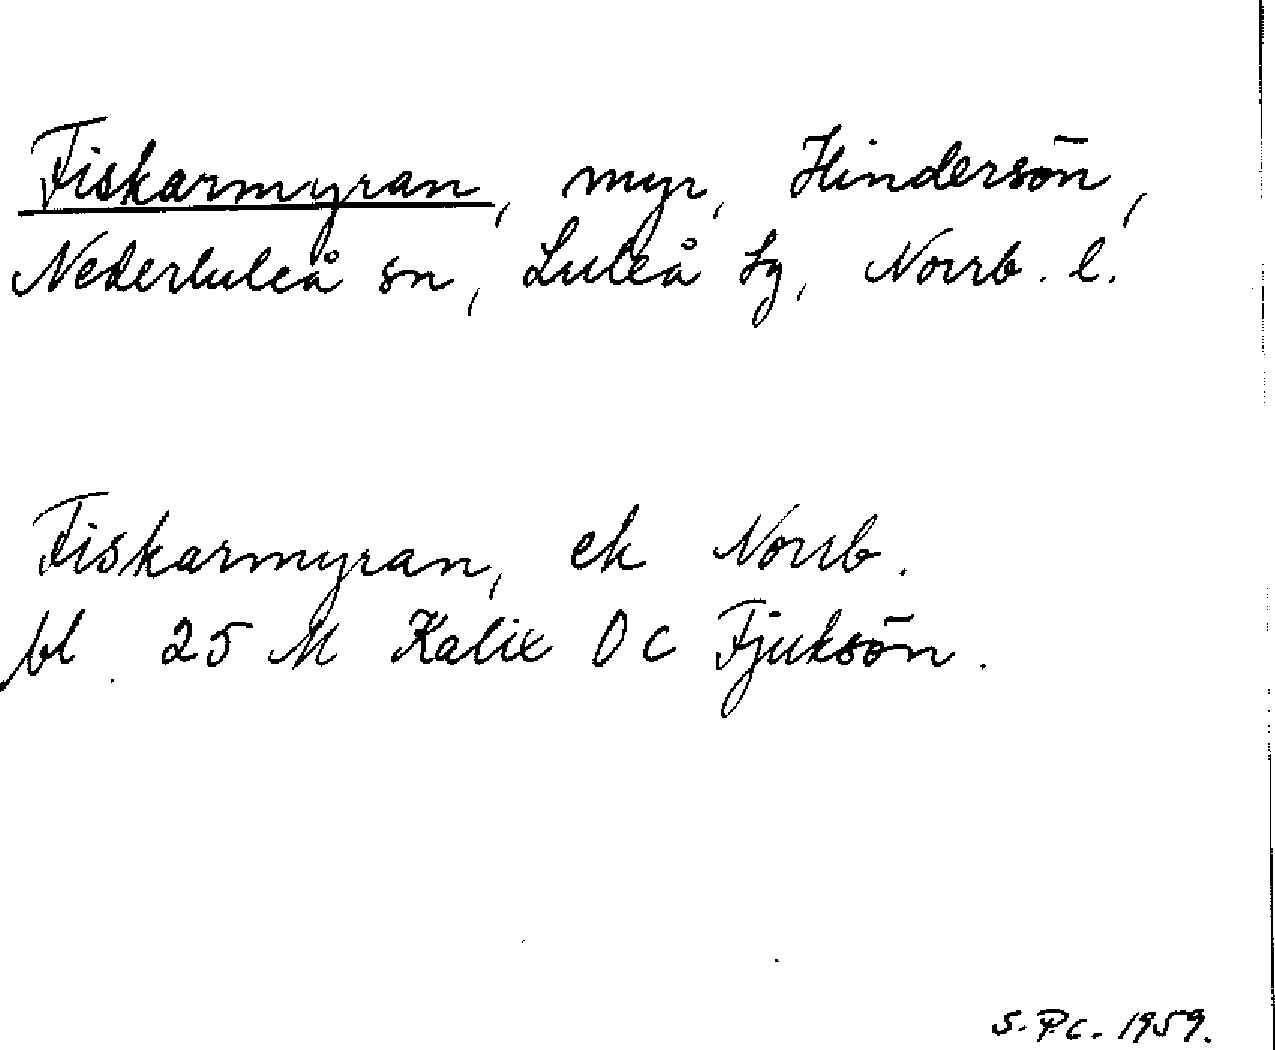 Fiskarmyran, myr, Hindersön,
Nederluleå sn, Luleå tg, Norrb. l.
Fiskarmyran, ek Norrb.
bl 25 M Kalix OC Fjuksön.
S. Pc. 1959.